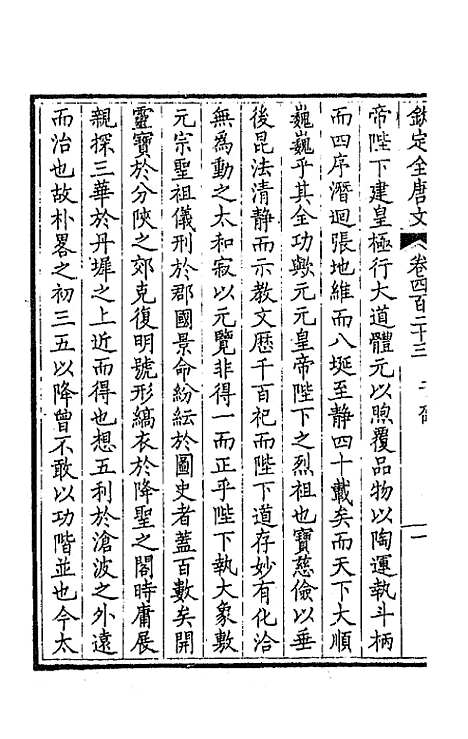 欽定全唐文 卷四百二十三 于 一
帝陛下建皇極行大道體元以煦覆品物以陶運執斗柄
而四序潛迴張地維而八埏至静四十載矣而天下大順
巍巍乎其全功歟元元皇帝陛下之烈祖也寶慈儉以垂
後昆法清静而示教文歷千百祀而陛下道存妙有化洽
無為動之太和寂以元覽非得一而正乎陛下執大象敷
元宗聖祖儀刑於郡國景命紛紜於圖史者蓋百數矣開
靈寶於分陝之郊克復明號形縞衣於降聖之閣時庸展
親探三華於丹墀之上近而得也想五利於滄波之外遠
而治也故朴畧之初三五以降曾不敢以功階並也今太